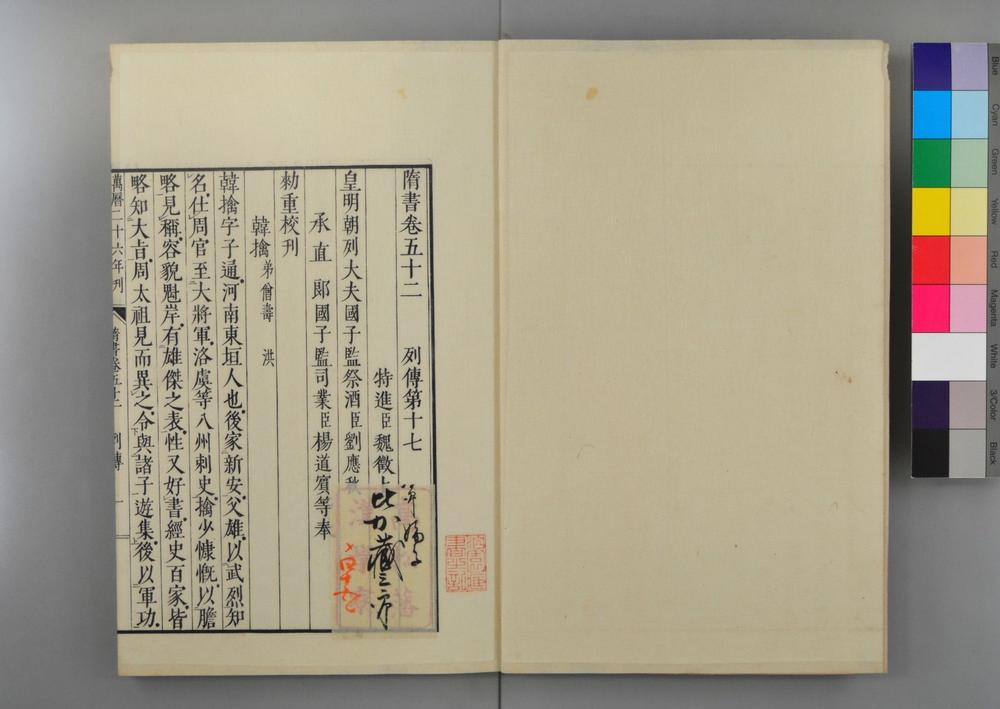 隋書卷五十二　　列傳第十七
特進臣魏徵上
皇明朝列大夫國子監祭酒臣劉應秋
承直郎國子監司業臣楊道賓等奉
勑重校刊
韓擒弟僧壽　洪
韓擒字子通河南東垣人也後家新安父雄以武烈知
名仕周官至大將軍洛虞等八州刺史擒少慷慨以膽
略見稱容貌魁岸有雄傑之表性又好書經史百家皆
略知大旨周太祖見而異之令與諸子遊集後以軍功
萬曆二十六年刊　隋書卷五十二　列傳　一
Blue
Cyan
Green
Yellow
Red
Magenta
White
3/Color
Black